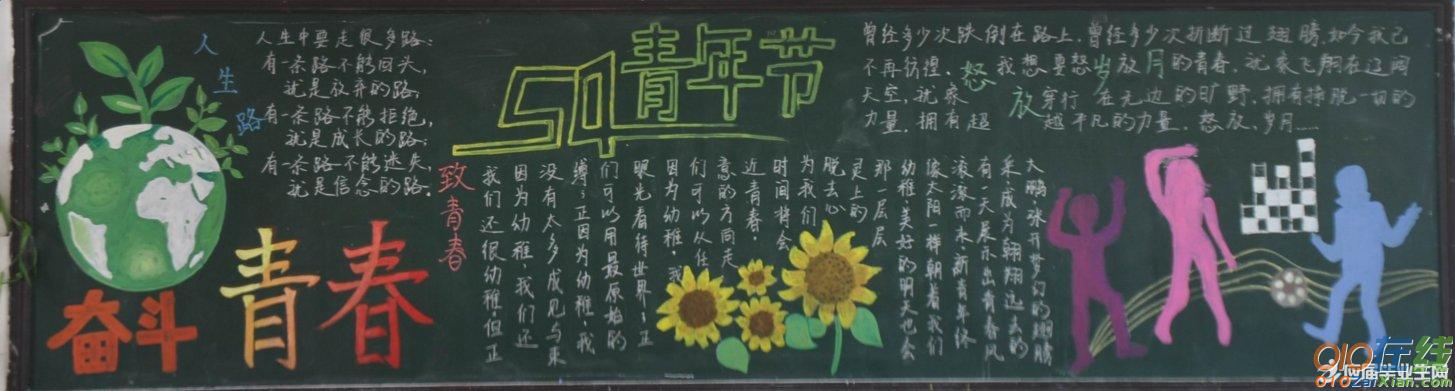 人生路
人生中要走很多路:
有一条路不能回头,
就是放弃的路;
有一条路不能拒绝,
就是成长的路;
有一条路不能迷失,
就是信念的路。
奋斗
青春
54青年节
致青春
我们还很幼稚,但正
因为幼稚,我们还
没有太多成见与束
缚;正因为幼稚,我
们可以用最原始的
眼光看待世界;正
因为幼稚,我
们可以从任
意的方向走
近青春,
时间将会
为我们
脱去心
灵上的
那一层层
幼稚,美好的明天也会
像太阳一样朝着我们
滚滚而来,新青年终
有一天展示出青春风
采,成为翱翔远去的
大鹏,张开梦幻的翅膀
怒放岁月
曾经多少次跌倒在路上,曾经多少次折断过翅膀,如今我已
不再彷徨,我想要怒放的青春,就象飞翔在辽阔
天空,就象穿行在无边的旷野,拥有挣脱一切的
力量,拥有超越平凡的力量。怒放,岁月......
应届毕业生网